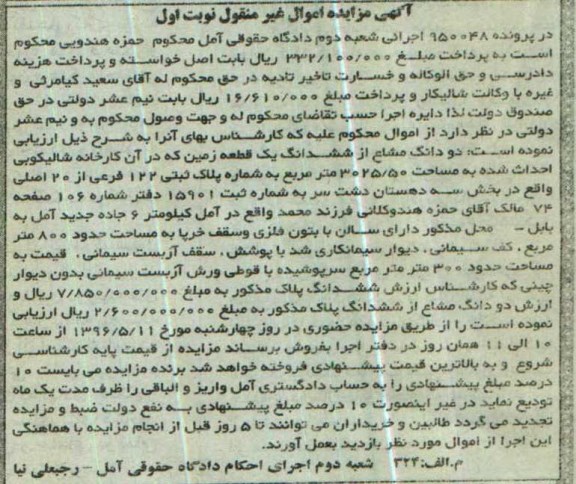 آگهی مزایده اموال غیر منقول نوبت اول
در پرونده ۹۵۰۰۴۸ اجرائی شعبه دوم دادگاه حقوقی آمل محکوم حمزه هندویی محکوم
است به پرداخت مبلغ ۳۳۲/۱۰۰/۰۰۰ ریال بابت اصل خواسته و پرداخت هزینه
دادرسی و حق الوکاله و خسارت تاخیر تادیه در حق محکوم له آقای سعید کیامرثی و
غیره با وکالت شالیکار و پرداخت مبلغ ۱۶/۶۱۰/۰۰۰ ریال بابت نیم عشر دولتی در حق
صندوق دولت لذا دایره اجرا حسب تقاضای محکوم له و جهت وصول محکوم به و نیم عشر
دولتی در نظر دارد از اموال محکوم علیه که کارشناس بهای آنرا به شرح ذیل ارزیابی
نموده است: دو دانگ مشاع از ششدانگ یک قطعه زمین که در آن کارخانه شالیکوبی
احداث شده به مساحت ۳۰۲۵/۵۰ متر مربع به شماره پلاک ثبتی ۱۲۲ فرعی از ۲۰ اصلی
واقع در بخش سه دهستان دشت سر به شماره ثبت ۱۵۹۰۱ دفتر شماره ۱۰۶ صفحه
۷۴ مالک آقای حمزه هندوکلائی فرزند محمد واقع در آمل کیلومتر ۶ جاده جدید آمل به
بابل – محل مذکور دارای سالن با بتون فلزی وسقف خرپا به مساحت حدود ۸۰۰ متر
مربع ، کف سیمانی ، دیوار سیمانکاری شد با پوشش ، سقف آزبست سیمانی ، قیمت به
مساحت حدود ۳۰۰ متر متر مربع سرپوشیده با قوطی ورش آزبست سیمانی بدون دیوار
چینی که کارشناس ارزش ششدانگ پلاک مذکور به مبلغ ۷/۸۵۰/۰۰۰/۰۰۰ ریال و
ارزش دو دانگ مشاع از ششدانگ پلاک مذکور به مبلغ ۲/۶۰۰/۰۰۰/۰۰۰ ریال ارزیابی
نموده است را از طریق مزایده حضوری در روز چهارشنبه مورخ ۱۳۹۶/۵/۱۱ از ساعت
۱۰ الی ۱۱ همان روز در دفتر اجرا بفروش برساند مزایده از قیمت پایه کارشناسی
شروع و به بالاترین قیمت پیشنهادی فروخته خواهد شد برنده مزایده می بایست ۱۰
درصد مبلغ پیشنهادی را به حساب دادگستری آمل واریز و الباقی را ظرف مدت یک ماه
تودیع نماید در غیر اینصورت ۱۰ درصد مبلغ پیشنهادی به نفع دولت ضبط و مزایده
تجدید می گردد طالبین و خریداران می توانند تا ۵ روز قبل از انجام مزایده با هماهنگی
این اجرا از اموال مورد نظر بازدید بعمل آورند.
م.الف: ۳۲۴ شعبه دوم اجرای احکام دادگاه حقوقی آمل – رجبعلی نیا